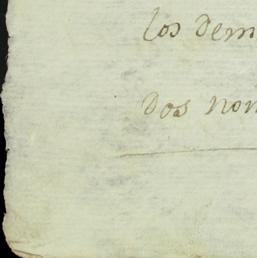 los dem
dos non